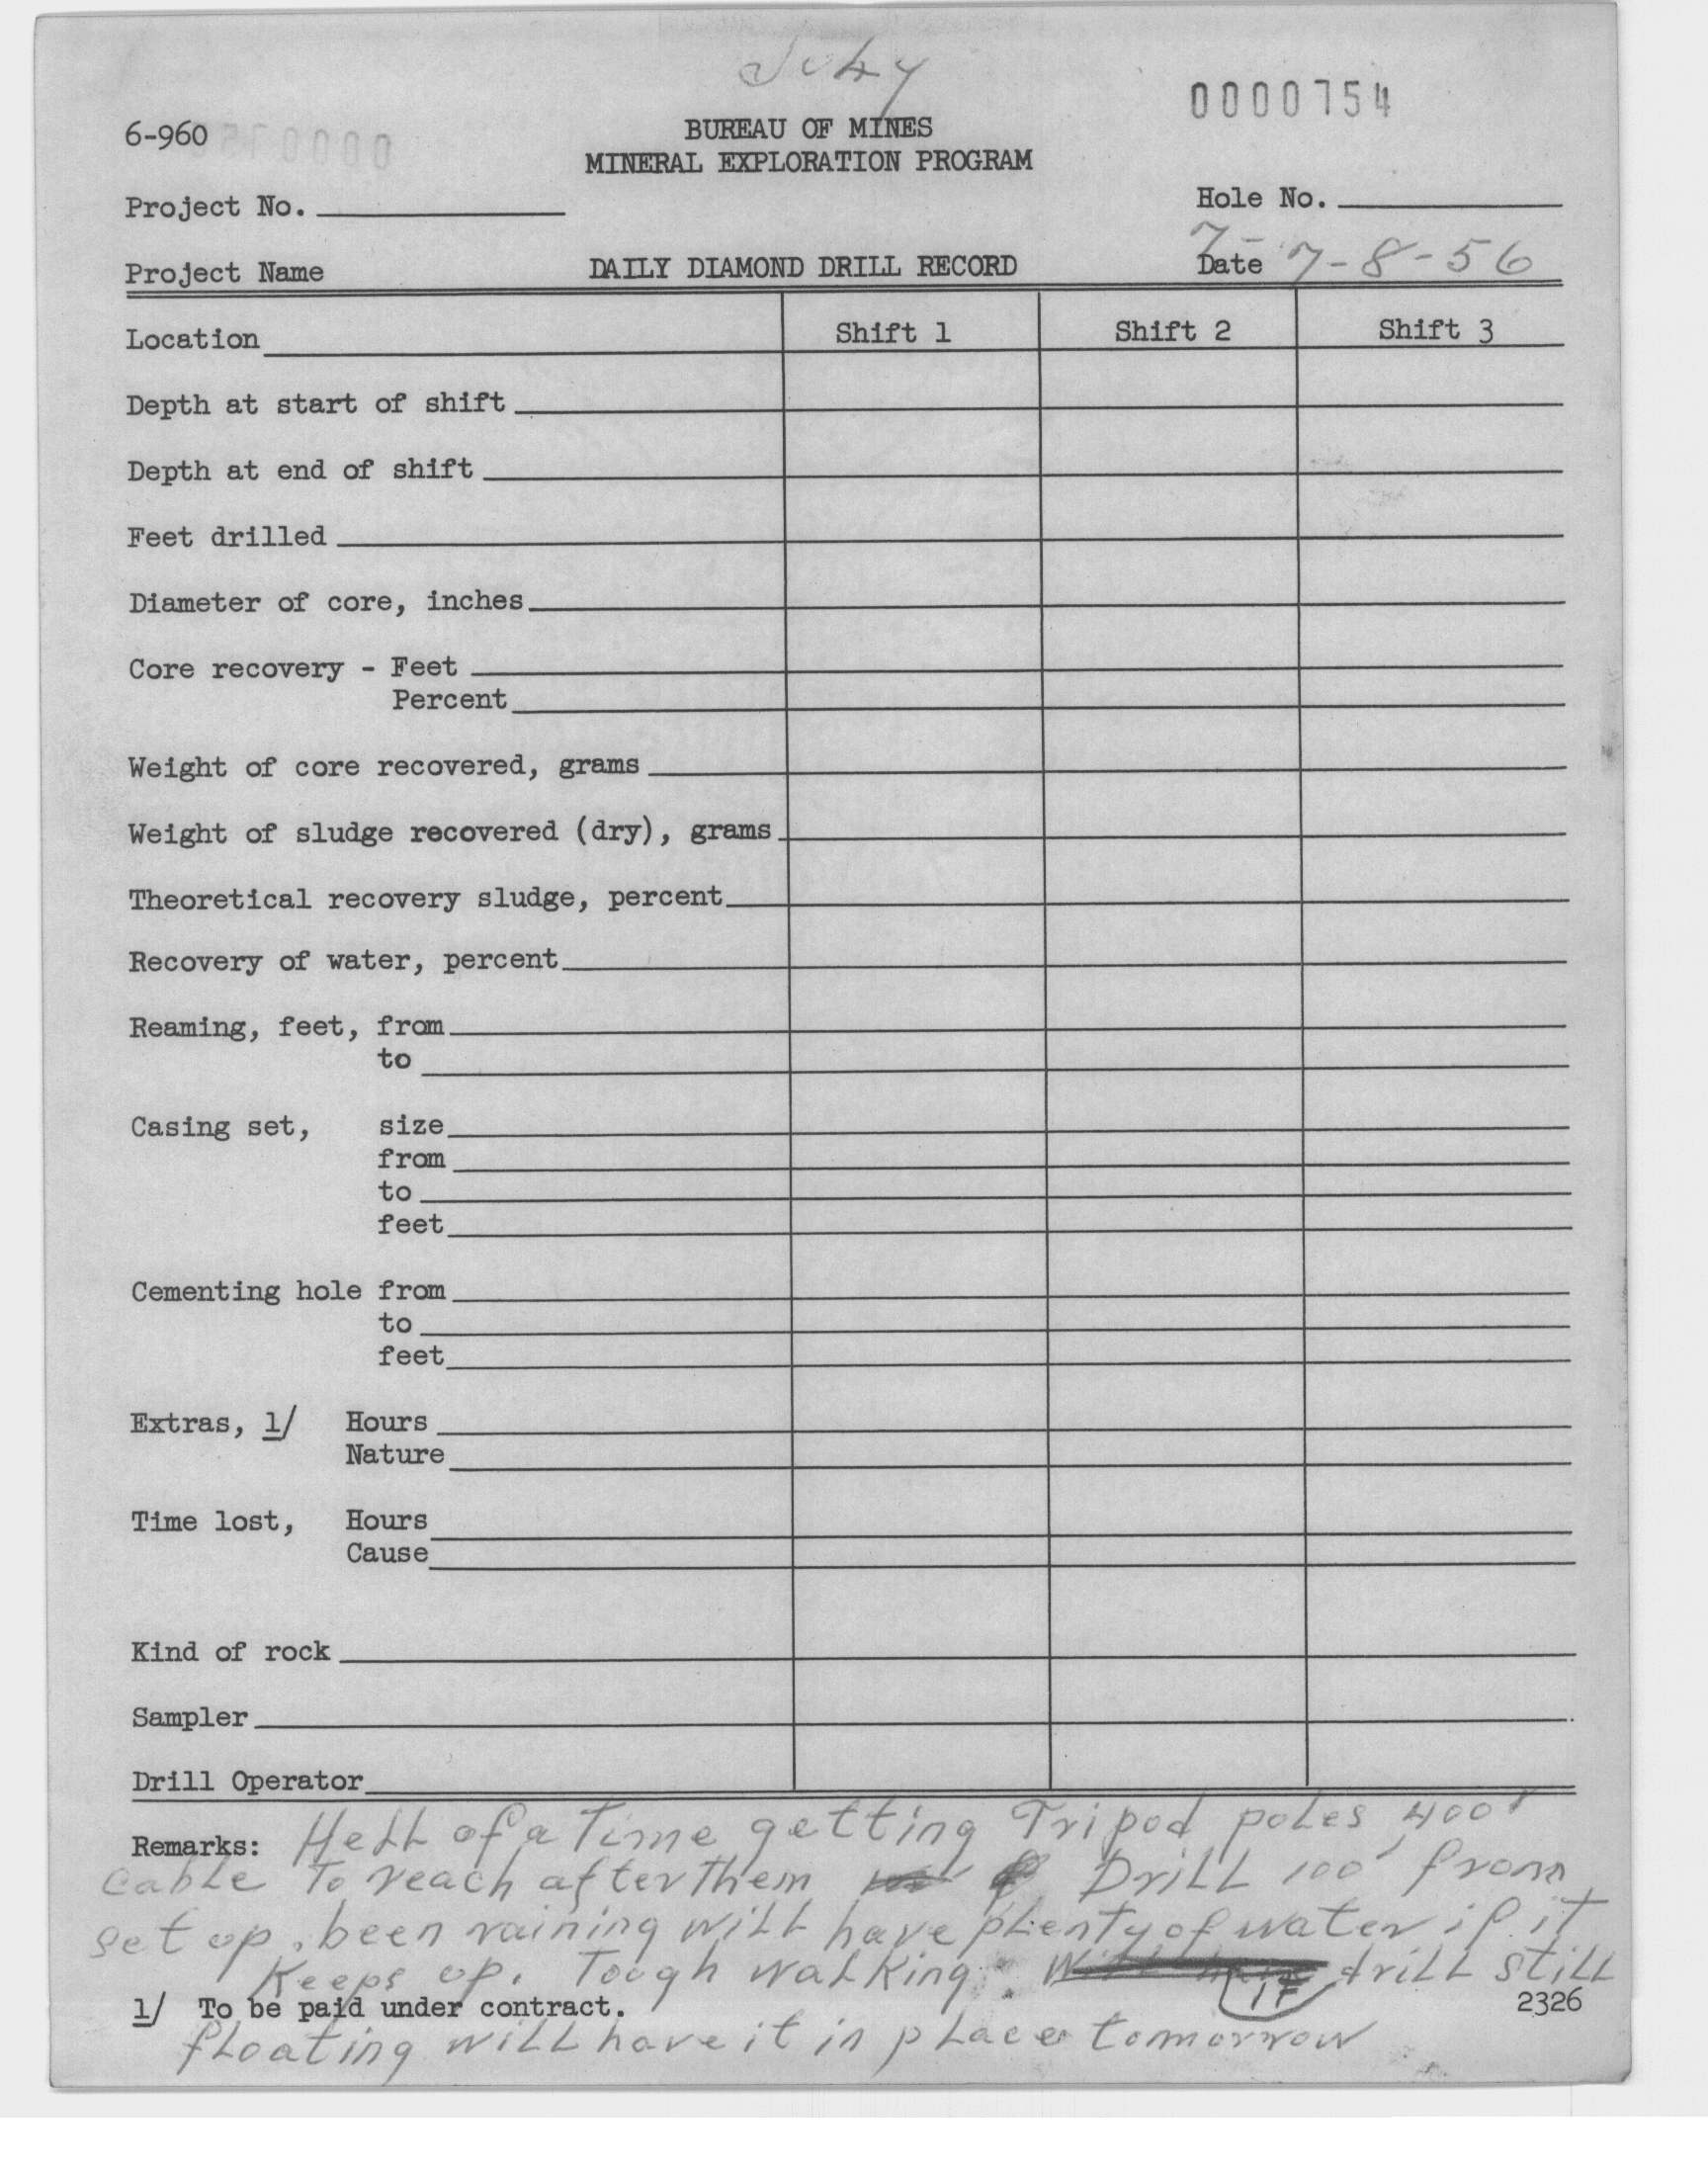 July
0000754
6-960
BUREAU OF MINES
MINERAL EXPLORATION PROGRAM
Project No.
Hole No.
7-
Project Name
DAILY DIAMOND DRILL RECORD
Date 7-8-56
Location Shift 1 Shift 2 Shift 3
Depth at start of shift
Depth at end of shift
Feet drilled
Diameter of core, inches
Core recovery - Feet
Percent
Weight of core recovered, grams
Weight of sludge recovered (dry), grams
Theoretical recovery sludge, percent
Recovery of water, percent
Reaming, feet, from
to
Casing set, size
from
to
feet
Cementing hole from
to
feet
Extras, 1/ Hours
Nature
Time lost, Hours
Cause
Kind of rock
Sampler
Drill Operator
Remarks: Hell of a Time getting Tripod poles 400'
Cable To reach after Them Drill 100' from
set up. been raining will have plenty of water if it
Keeps up. Tough walking. drill still
IF
1/ To be paid under contract.
2326
floating will have it in place tomorrow